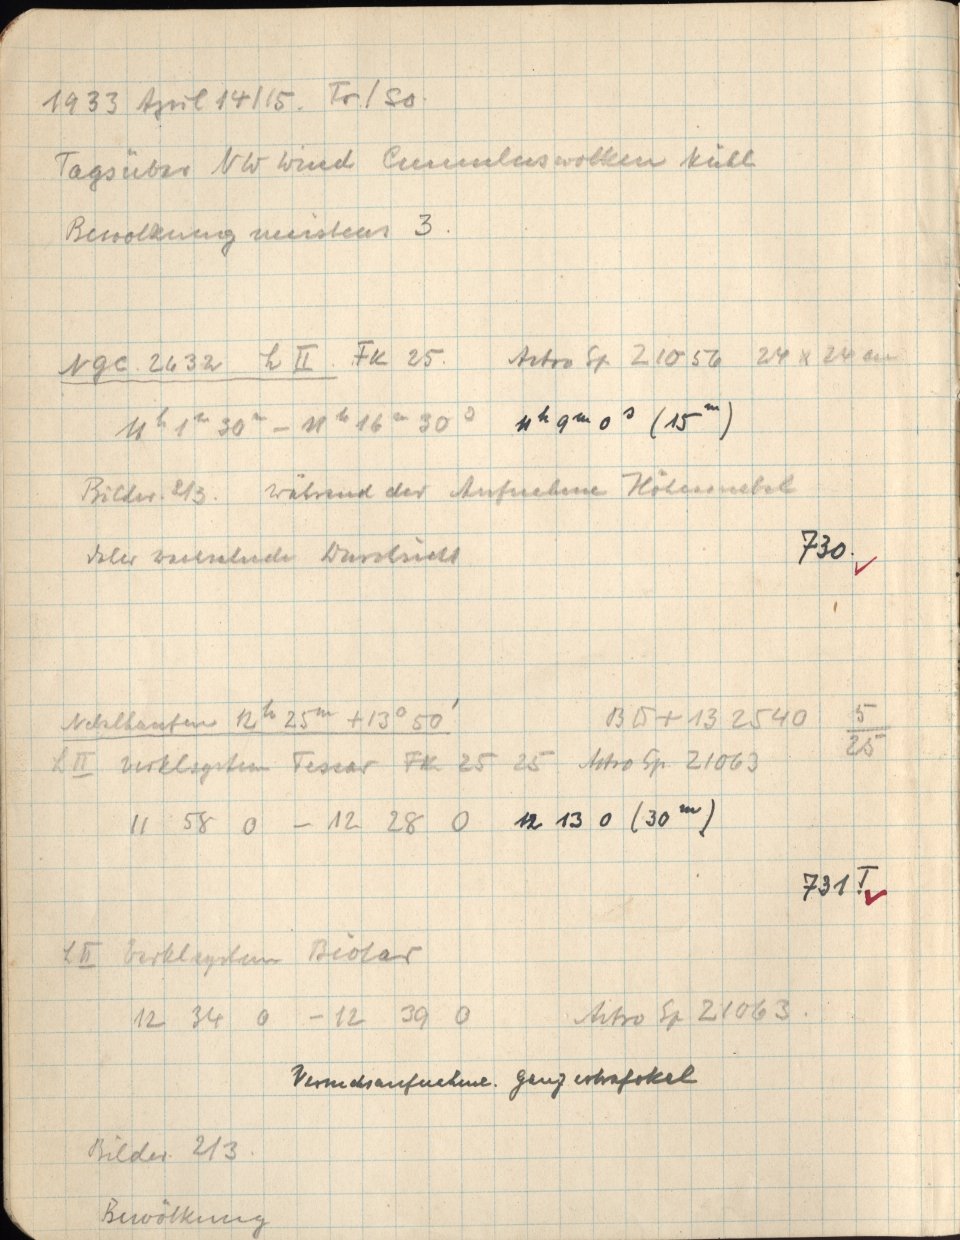 1933 April 14/15. Fr/Sa.
Tagsüber NW Wind Cumuluswolken kühl
Bewölkung meistens 3.
NGC. 2632 L II FK 25. Astro Sp 21056 24 x 24 cm
11h 1m 30m – 11h 16m 30s 11h 9m 0s (15m)
Bilder. 2/3. während der Aufnahme Höhennebel
daher wechselnde Durchsicht
730.
Nebelhaufen 12h 25m +13° 50' BD + 13 2540 5/25
L II Verklsystem Tessar FK 25 25 Astro Sp 21063
11 58 0 – 12 28 0 12 13 0 (30m)
731 I
L II Verklsystem Biotar
12 34 0 – 12 39 0 Astro Sp 21063.
Versuchsaufnahme. ganz extrafokal
Bilder 2/3.
Bewölkung